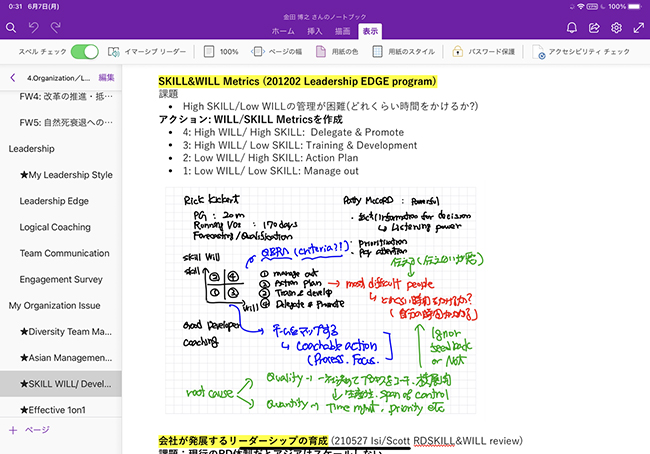 0:31 6月7日(月)
100%
会田 博之 さんのノートブック
ホーム 挿入 描画 表示
スペル チェック イマーシブ リーダー 100% ページの幅 用紙の色 用紙のスタイル パスワード保護 アクセシビリティ チェック
4.Organization／L... 編集
FW4: 改革の推進・抵...
FW5: 自然死衰退への...
Leadership
★My Leadership Style
Leadership Edge
Logical Coaching
Team Communication
Engagement Survey
My Organization Issue
★Diversity Team Ma...
★Asian Managemen...
★SKILL WILL/ Devel...
★Effective 1on1
＋ ページ
SKILL&WILL Metrics (201202 Leadership EDGE program)
課題
• High SKILL/Low WILLの管理が困難(どれくらい時間をかけるか?)
アクション: WILL/SKILL Metricsを作成
• 4: High WILL/ High SKILL: Delegate & Promote
• 3: High WILL/ Low SKILL: Training & Development
• 2: Low WILL/ High SKILL: Action Plan
• 1: Low WILL/ Low SKILL: Manage out
Rick
PG : 20m
Running Vos : 170 days
Forecasting / Qualification
Patty McCORD : Powerful
• fact/information for decision
↳ Listening power
• Prioritization
• Pay attention
QBRへ (criteria?!)
skill will
skill
② ④
① ③
will
① manage out
② Action plan
③ Train & develop
④ Delegate & Promote
→ most difficult people
↳ どれくらい時間をかけるか?
Good Developer
coaching
チームをマップする
↳ coachable action
(Process. Focus.
Ignor
feedback
or Not
root cause
Quality
↓ 生産性. span of control
Quantity → Time mgmt, priority etc
会社が発展するリーダーシップの育成 (210527 Isi/Scott RDSKILL&WILL review)
課題：現行のRD体制だとアジアはスケールしない